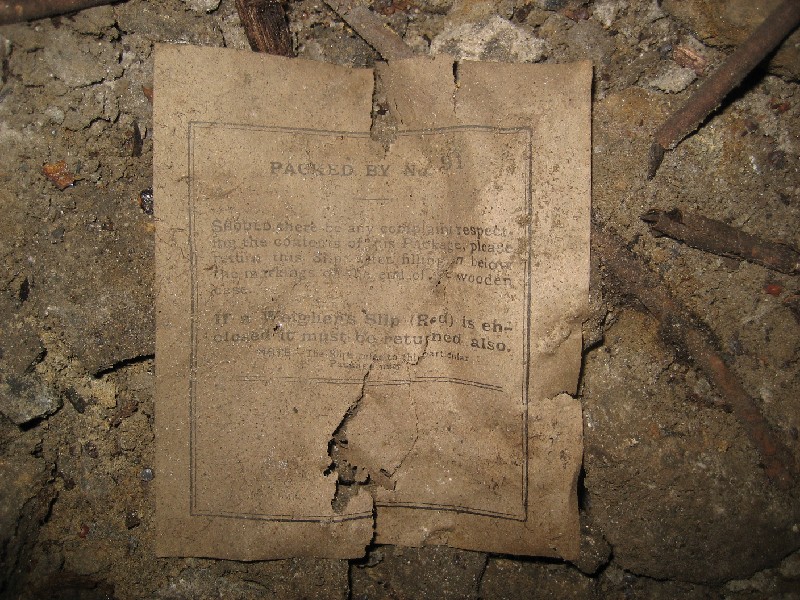 PACKED BY No. 91
SHOULD there be any complaint respect-
ing the contents of this Package, please
return this Slip after filling in below
the markings on the end of the wooden
case.
If a Weigher's Slip (Red) is en-
closed it must be returned also.
NOTE The Slip refers to this particular
Package